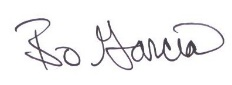 Bo Garcia